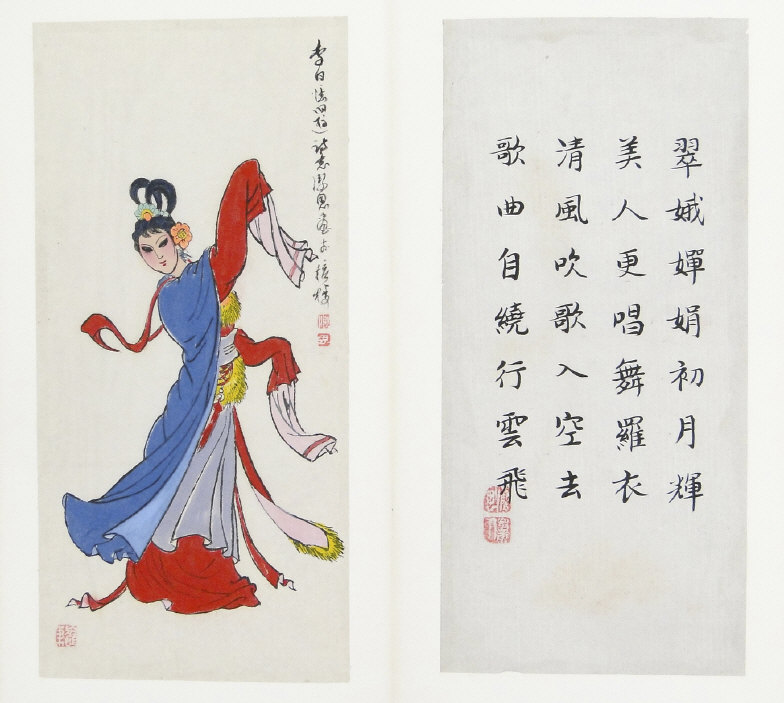 翠娥嬋娟初月輝
美人更唱舞羅衣
清風吹歌入空去
歌曲自繞行雲飛
李白